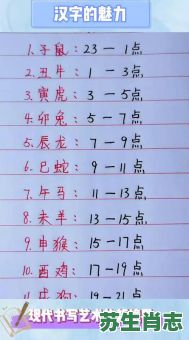 汉字的魅力
1.子鼠：23－1点
2.丑牛：1－3点
3.寅虎：3－5点
4.卯兔：5－7点
5.辰龙：7－9点
6.巳蛇：9－11点
7.午马：11－13点
8.未羊：13－15点
9.申猴：15－17点
10.酉鸡：17－19点
11.戌狗：19－21点
现代书写艺术
苏生肖志